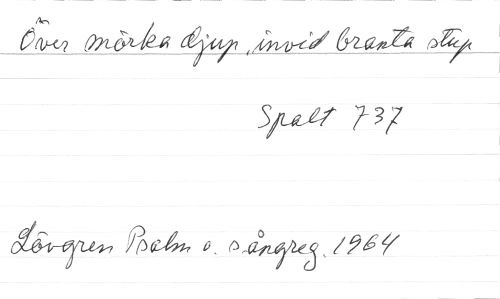 Över mörka djup, invid branta stup
Spalt 737
Lövgren Psalm o. sångreg. 1964